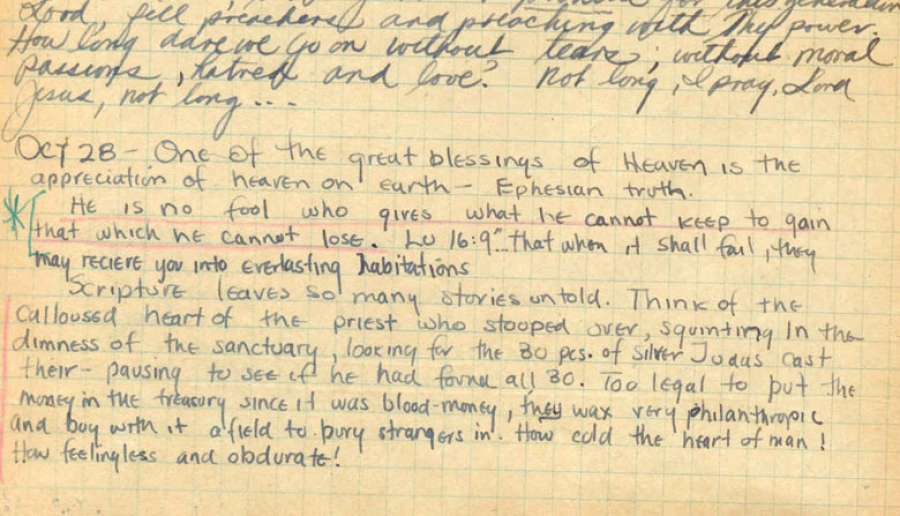 for this generation
Lord, fill preachers and preaching with Thy power.
How long dare we go on without tears, without moral
passions, hatred and love? Not long, I pray, Lord
Jesus, not long...
Oct 28 - One of the great blessings of Heaven is the
appreciation of heaven on earth - Ephesian truth.
* He is no fool who gives what he cannot keep to gain
that which he cannot lose. Lu 16:9 "that when it shall fail, they
may reciere you into everlasting habitations
Scripture leaves so many stories untold. Think of the
calloused heart of the priest who stooped over, squinting in the
dimness of the sanctuary, looking for the 30 pcs. of silver Judas cast
their - pausing to see if he had found all 30. Too legal to put the
money in the treasury since it was blood-money, they wax very philanthropic
and buy with it a field to bury strangers in. How cold the heart of man!
How feelingless and obdurate!